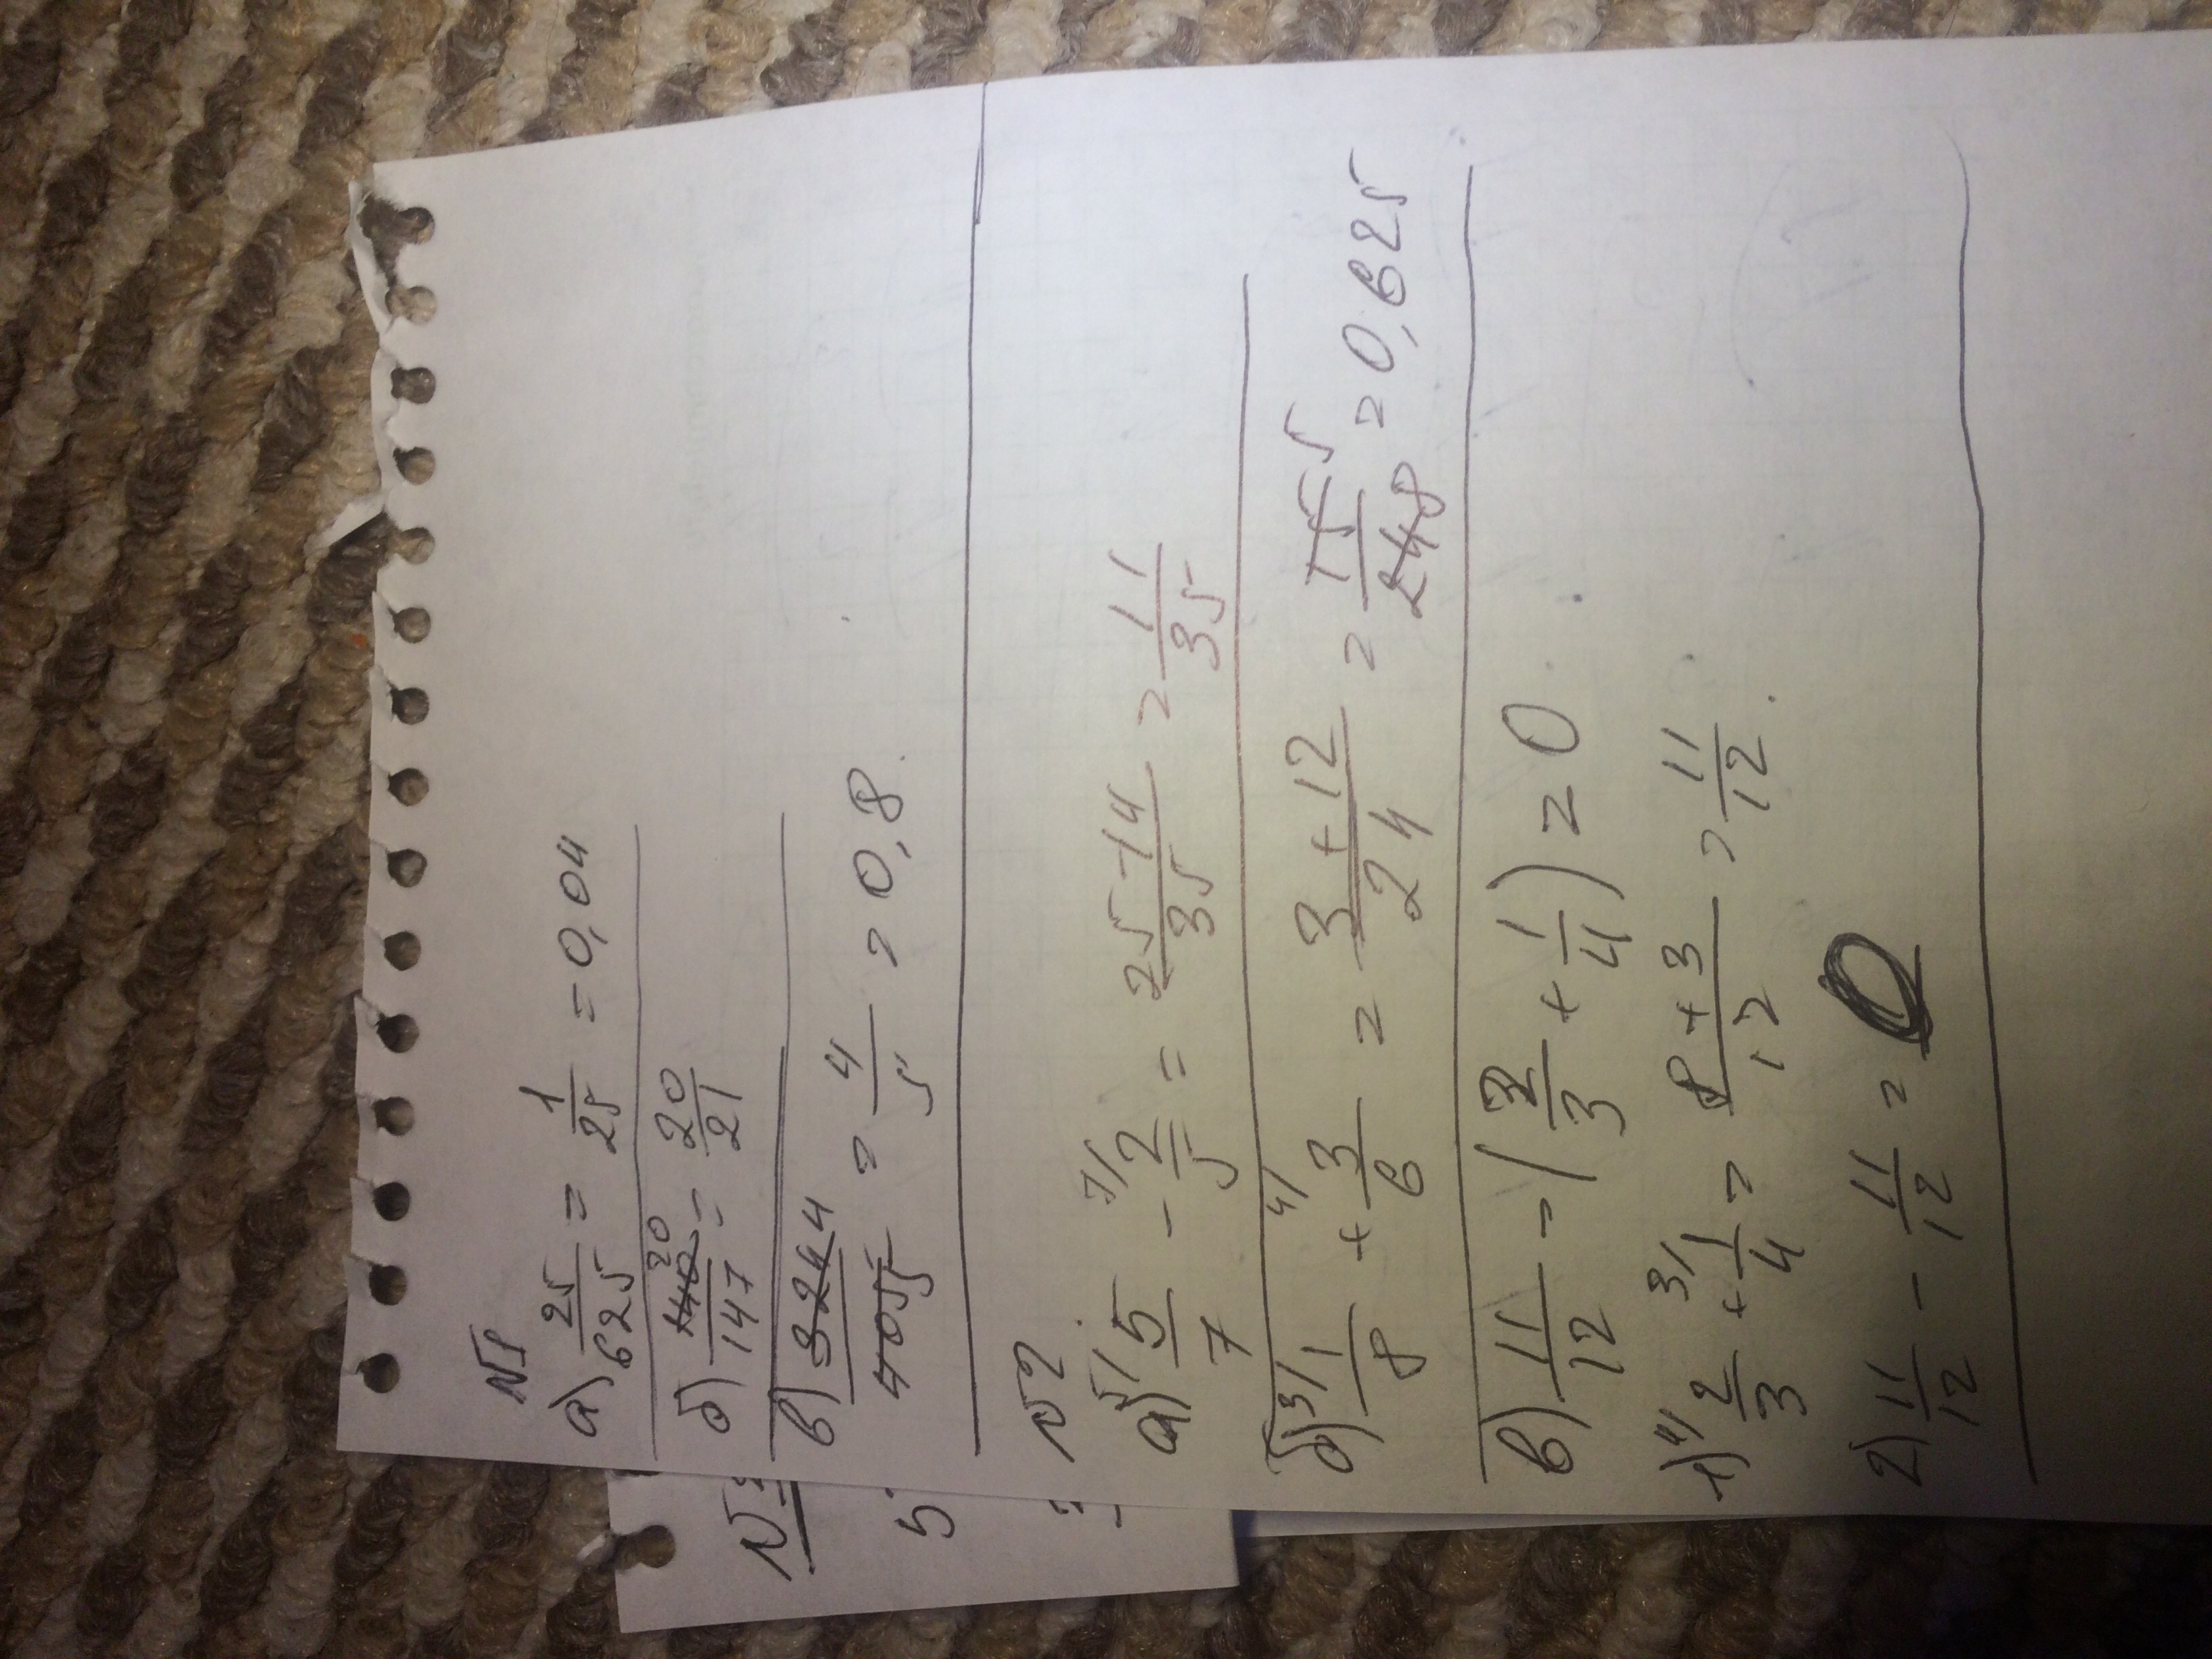 №1
а) 25/625 = 1/25 = 0,04
б) 140 20/147 = 20/21
в) 324 4/405 5 = 4/5 = 0,8.
№2
а) 5/ 5/7 - 7/ 2/5 = 25-14/35 = 11/35
б) 3/ 1/8 + 4/ 3/6 = 3+12/24 = 15 5/24 8 = 0,625
в) 11/12 - (2/3 + 1/4) = 0
1) 4/ 2/3 + 3/ 1/4 = 8+3/12 = 11/12.
2) 11/12 - 11/12 = 0
№
5